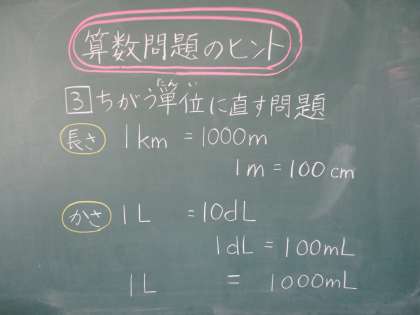 算数問題のヒント
3 ちがう単位に直す問題
たんい
長さ 1km = 1000m
1m = 100cm
かさ 1L = 10dL
1dL = 100mL
1L = 1000mL